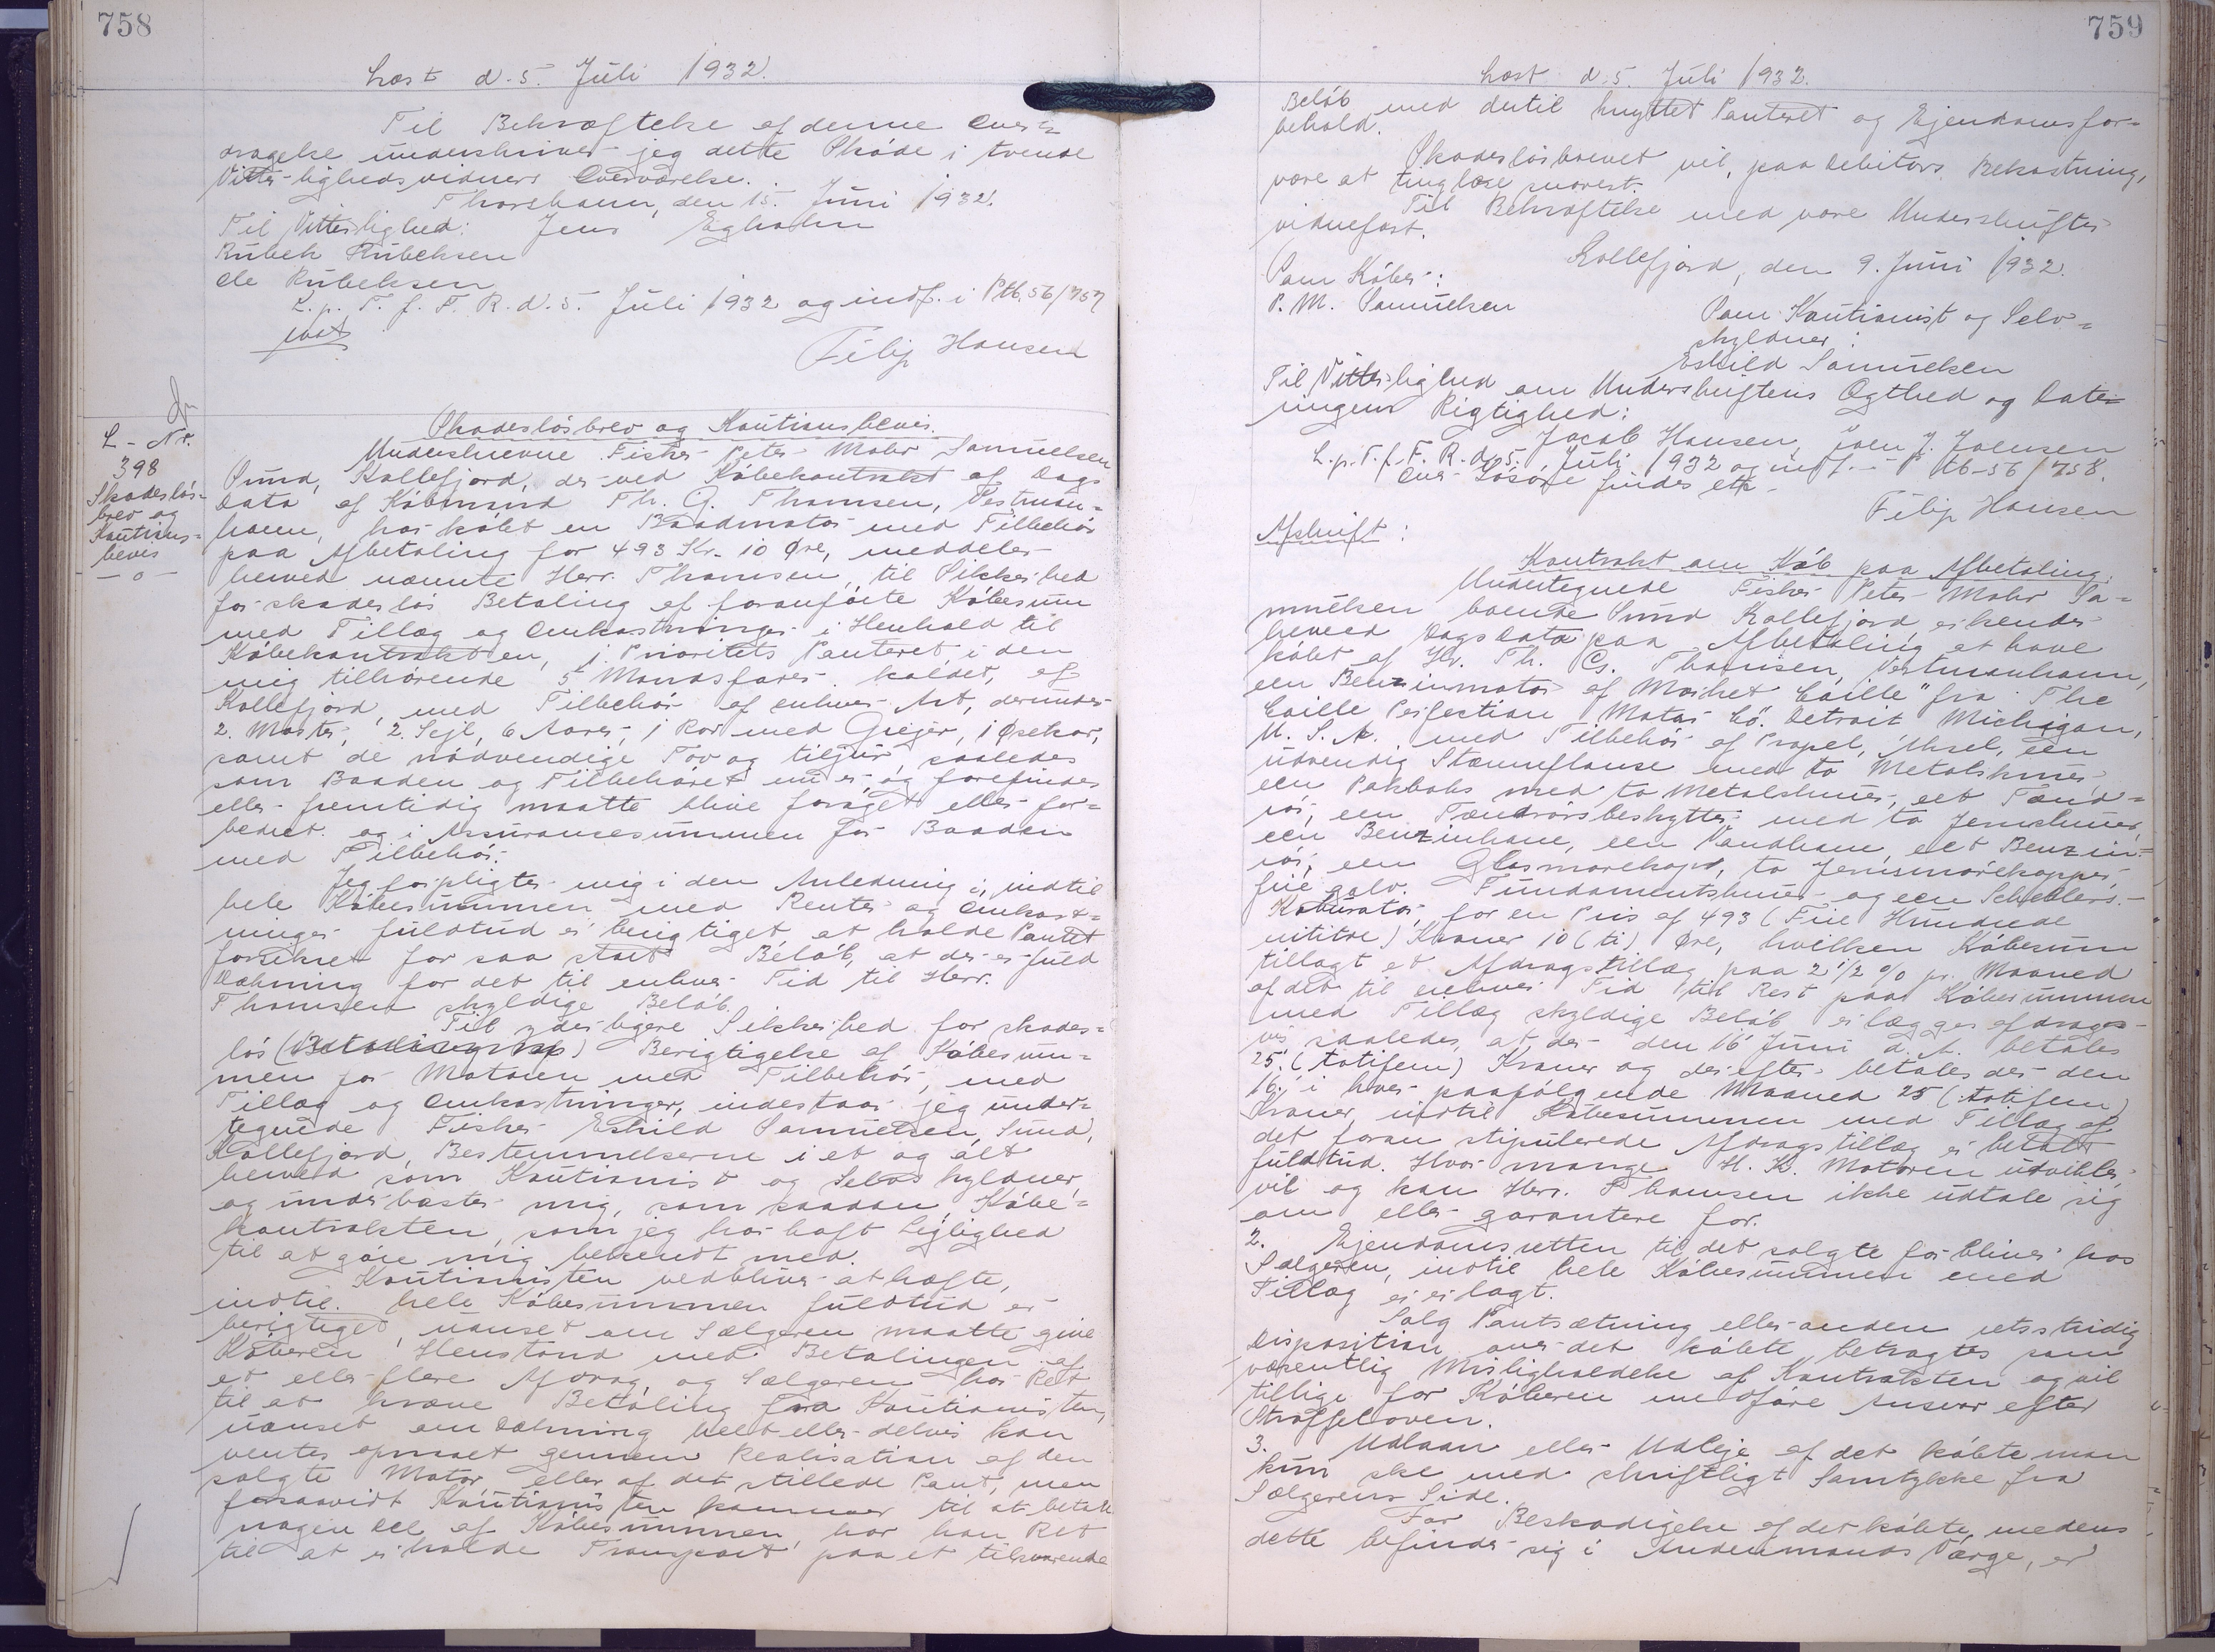 758
Læst d. 5. Juli 1932.
Til Bekræftelse af denne Over=
dragelse underskriver jeg dette Skøde i tvende
Vitterlighedsvidners Overværelse.
Thorshavn, den 15. Juni 1932.
Til Vitterlighed: Jens Egholm
Rubek Rubeksen
Ole Rubeksen
L. p. T. f. F. R. d. 5. Juli 1932 og indf. i Ptb. 56/757
Filip Hansen
L - Nr.
398
Skadesløs-
brev og
Kautions=
bevis
— o —
Skadesløsbrev og Kautionsbevis.
Underskrevne Fisker Peter Mohr Samuelsen
Sund, Kollefjord, der ved Købekontrakt af Dags
Dato af Købmand Th. G. Thomsen, Vestman=
havn, har købt en Baadmotor med Tilbehør
paa Afbetaling for 493 Kr. 10 Øre, meddeler
herved nævnte Herr. Thomsen, til Sikkerhed
for skadesløs Betaling af foranførte Købesum
med Tillæg og Omkostninger i Henhold til
Købekontrakten, 1. Prioritets Panteret i den
mig tilhørende 5 Mandsfarer kaldet, af
Kollefjord, med Tilbehør af enhver Art, derunder
2. Master, 2. Sejl, 6 Aarer, 1 Ror med Grejer, 1 Øsekar,
samt de nødvendige Tov og tiljur, saaledes
som Baaden og Tilbehøret nu er og forefindes
eller fremtidig maatte blive forøget eller for=
bedret. og i Assurancesummen for Baaden
med Tilbehør.
Jeg forpligter mig i den Anledning i, indtil
hele Købesummen med Renter og Omkost=
ninger fuldtud er berigtiget, at holde Pantet
forsikret for saa stort Beløb, at der er fuld
Dækning for det til enhver Tid til Herr.
Thomsen skyldige Beløb.
Til yderligere Sikkerhed for skades=
løs Berigtigelse af Købesum=
men for Motoren med Tilbehør, med
Tillæg og Omkostninger, indestaar jeg under=
tegnede Fisker Eskild Samuelsen, Sund,
Kollefjord, Bestemmelserne i et og alt
herved som Kautionist og Selvskyldner
og underkaster mig, som saadan, Købe=
kontrakten, som jeg har haft Lejlighed
til at gøre mig bekendt med.
Kautionisten vedbliver at hæfte,
indtil. hele Købesummen fuldtud er
berigtiget, uanset om Sælgeren maatte give
Køberen Henstand med Betalingen af
et eller flere Afdrag, og Sælgeren har Ret
til at kræve Betaling fra Kautionisten,
uanset om Dækning helt eller delvis kan
ventes opnaaet gennem Realisation af den
solgte Motor eller af det stillede Pant, men
forsaavidt Kautionisten kommer til at betale
nogen Del af Købesummen, har han Ret
til at erholde Transport paa et tilsvarende
759
Læst d. 5. Juli 1932.
Beløb med dertil knyttet Panteret og Ejendomsfor=
behold.
Skadesløsbrevet vil, paa Debitors Bekostning,
være at tinglæse snarest.
Til Bekræftelse med vore Underskrifter
vidnefast.
Kollefjord, den 9. Juni 1932.
Som Køber:
P. M. Samuelsen
Som Kautionist og Selv=
skyldner:
Eskild Samuelsen
Til Vitterlighed om Underskriftens Ægthed og Date=
ringens Rigtighed:
Jacob Hansen, Joen J. Joensen
L. p. T. f. F. R. d. 5. Juli 1932 og indf. i Ptb-56/758.
Over Løsøre findes
Filip Hansen
Afskrift:
Kontrakt om Køb paa Afbetaling.
Undertegnede Fisker Peter Mohr Sa=
muelsen boende Sund Kollefjord erkender
herved Dags Dato paa Afbetaling at have
købt af Hr. Th. G. Thomsen, Vestmanhavn,
een Benzinmotor af Mærket "Caille" fra "The
Caille Perfection Motor Co". Detroit Michigan,
U. S. A. med Tilbehør af Propel, Aksel, een
udvendig Stævnflanse med to Metalskruer
een Pakboks med to Metalskruer, eet Tænd=
rør, een Tændrørsbeskytter med to Jernskruer,
een Benzinhane, een Vandhane, eet Benzin=
rør, een Glasmørekop, to Jernsmørekopper,
fire galv. Fundamentskruer og een Scheblers.-
Kaburator, for en Pris af 493 (Fire Hundrede
nititre) Kroner 10 (ti) Øre, hvilken Købesum
tillagt et Afdragstillæg paa 2 1/2 % pr. Maaned
af det til enhver Tid til Rest paa Købesummen
med Tillæg skyldige Beløb erlægges afdrags-
vis saaledes, at der den 16 Juni d. A. betales
25. (totifem) Kroner og derefter betales der den
16. i hver paafølgende Maaned 25 (totifem)
Kroner, indtil Købesummen med Tillæg af
det foran stipulerede Afdragstillæg er betalt
fuldtud. Hvor mange H. K. Motoren udvikler,
vil og kan Herr. Thomsen ikke udtale sig
om eller garantere for.
2. Ejendomsretten til det solgte forbliver hos
Sælgeren, indtil hele Købesummen med
Tillæg er erlagt.
Salg Pantsætning eller anden retsstridig
Disposition over det købte betragtes som
væsentlig Misligholdelse af Kontrakten og vil
tillige for Køberen medføre Ansvar efter
Straffeloven.
3. Udlaan eller Udleje af det købte maa
kun ske med skriftligt Samtykke fra
Sælgerens Side.
For Beskadigelse af det købte, medens
dette befinder sig i Andenmands Værge, er